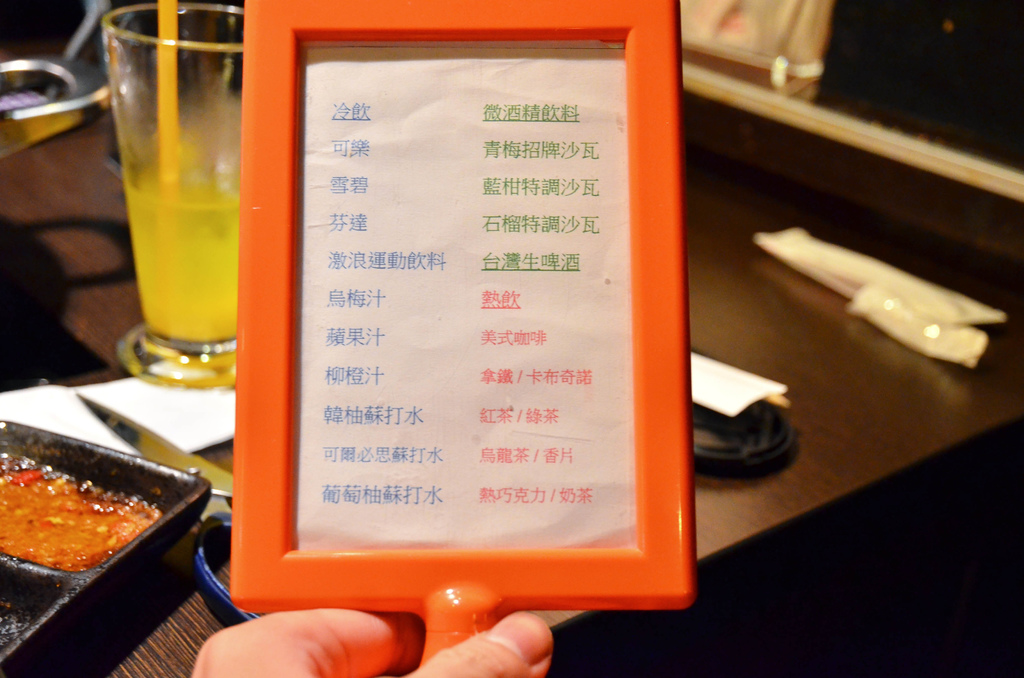 冷飲
可樂
雪碧
芬達
激浪運動飲料
烏梅汁
蘋果汁
柳橙汁
韓柚蘇打水
可爾必思蘇打水
葡萄柚蘇打水
微酒精飲料
青梅招牌沙瓦
藍柑特調沙瓦
石榴特調沙瓦
台灣生啤酒
熱飲
美式咖啡
拿鐵 / 卡布奇諾
紅茶 / 綠茶
烏龍茶 / 香片
熱巧克力 / 奶茶